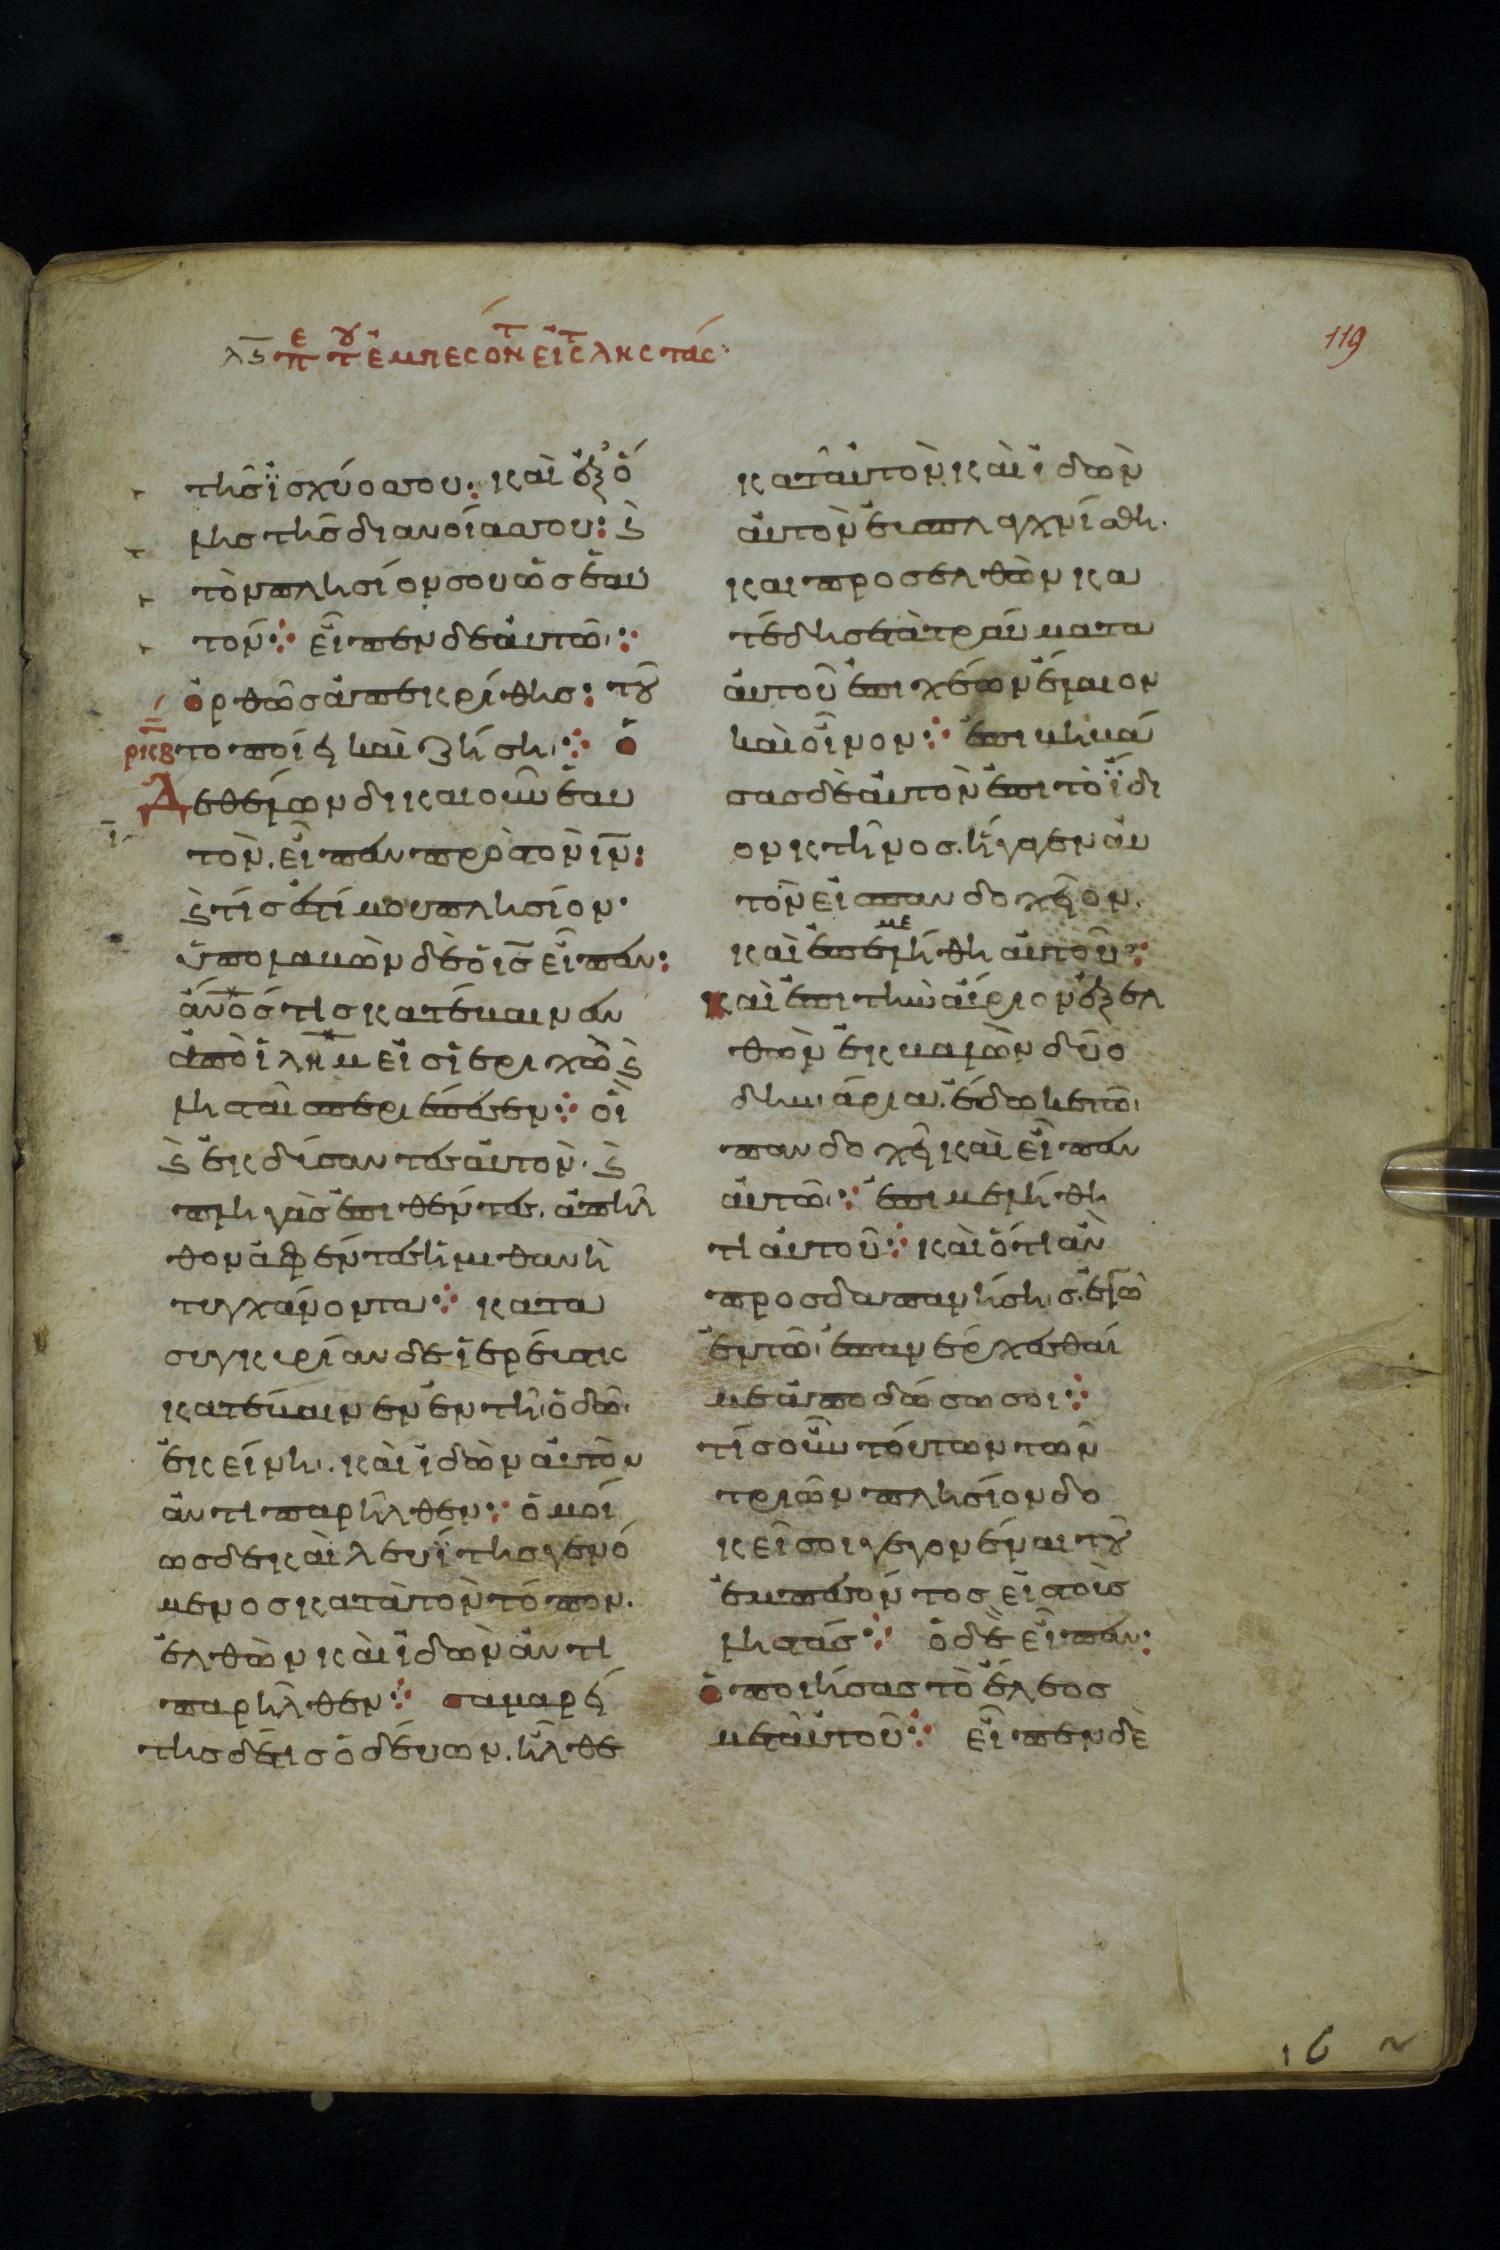 λϛ πε τοῦ ἐμπεσόντ εἰς τ ληστάς·
119
τῆς ἰσχύος σου· καὶ ἐξ ὅ
λης τῆς διανοίας σου: ϛ
τὸν πλησίον σου ὡς ἑαυ
τόν: εἶπεν δὲ αὐτῶ:
ὀρθῶς ἀπεκρίθης: τοῦ
ρκβ το ποίει καὶ ζήση: ὁ
Δὲ θέλων δικαιοῦν ἑαυ
τὸν. εἶπεν πρὸς τὸν ιν:
ϛ τίς ἐστί μου πλησίον·
ὑπολαβὼν δὲ ὁ ις εἶπεν:
ἄνος τις κατέβαινεν
ἀπὸ ἱλημ εἰς ἱεριχὼ ϛ
λησταῖς περιέπεσεν: οἳ
ϛ ἐκδύσαντες αὐτὸν· ϛ
πληγὰς ἐπιθέντες. ἀπῆλ
θον ἀφέντες ἡμιθανῆ
τυγχάνοντα: κατα
συγκυρίαν δὲ ἱερεύς τις
κατέβαινεν ἐν τῆ ὁδῶ
ἐκείνη. καὶ ἰδὼν αὐτὸν
ἀντιπαρῆλθεν: ὁμοί
ως δὲ καὶ λευΐτης γενό
μενος κατὰ τὸν τόπον.
ἐλθὼν καὶ ἰδὼν ἀντι
παρῆλθεν: σαμαρεί
της δέ τις ὁδεύων. ἦλθε
κατ αὐτὸν καὶ ἰδὼν
αὐτὸν ἐσπλαγχνίσθη.
καὶ προσελθὼν κα
τέδησε τὰ τραύματα
αὐτοῦ ἐπιχέων ἔλαιον
καὶ οἶνον: ἐπιβηβά
σας δὲ αὐτὸν ἐπι τὸ ἴδι
ον κτῆνος. ἤγαγεν αὐ
τὸν εἰς πανδοχεῖον.
καὶ ἐπεμελήθη αὐτοῦ:
καὶ ἐπι τὴν αὔριον ἐξελ
θὼν ἐκβαλὼν δύο
δηνάρια. ἔδωκε τῶ
πανδοχεῖ καὶ εἶπεν
αὐτῶ: ἐπιμελήθη
τι αὐτοῦ: καὶ ὅτι ἂν
προσδαπανήσης. ἐγὼ
ἐν τῶ ἐπανέρχεσθαί
με ἀποδώσω σοι:
τίς οὖν τούτων τῶν
τριῶν πλησίον δο
κεῖ σοι γεγονέναι τοῦ
ἐμπεσόντος εἰς τοὺς
ληστάς: ὁ δὲ εἶπεν:
ὁ ποιήσας τὸ ἔλεος
μετ αὐτοῦ: εἶπεν δὲ